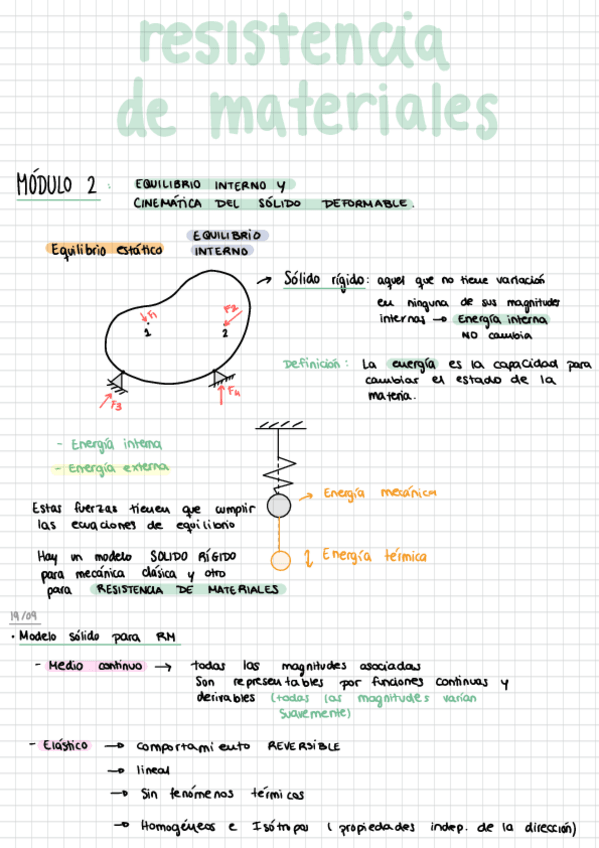 resistencia
de materiales
MÓDULO 2 : EQUILIBRIO INTERNO Y
CINEMÁTICA DEL SÓLIDO DEFORMABLE.
Equilibrio estático
EQUILIBRIO
INTERNO
Sólido rígido: aquel que no tiene variación
en ninguna de sus magnitudes
internas → Energía interna
NO cambia
F1
1
F2
2
F3
F4
Definición: La energía es la capacidad para
cambiar el estado de la
materia.
- Energía interna
- Energía externa
Energía mecánica
Estas fuerzas tienen que cumplir
las ecuaciones de equilibrio
Energía térmica
Hay un modelo SOLIDO RÍGIDO
para mecánica clásica y otro
para RESISTENCIA DE MATERIALES
19/09
· Modelo sólido para RM
- Medio continuo → todas las magnitudes asociadas
Son representables por funciones continuas y
derivables (todas las magnitudes varían
suavemente)
- Elástico → comportamiento REVERSIBLE
→ lineal
→ Sin fenómenos térmicos
→ Homogéneos e Isótropos ( propiedades indep. de la dirección)